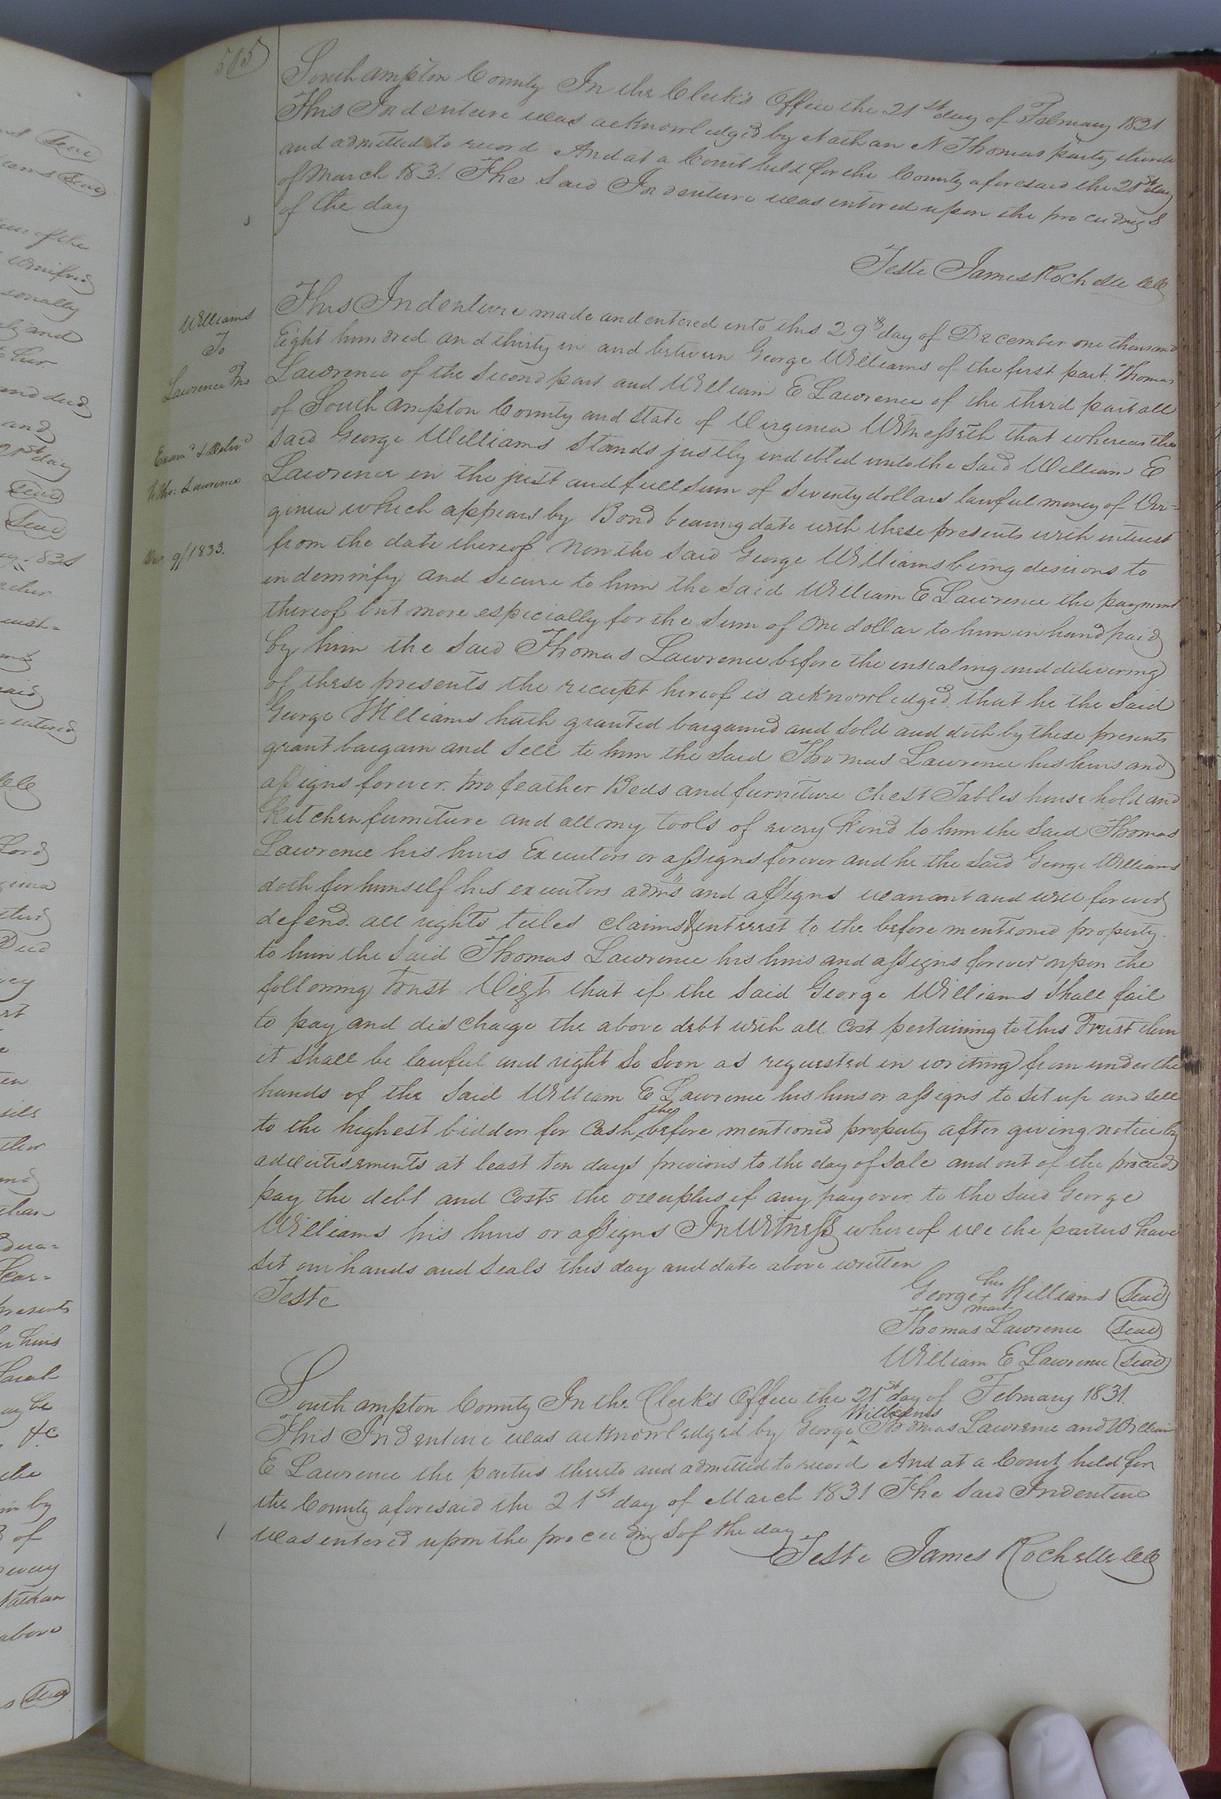 505
Southampton County In the Clerk's Office the 21st day of February 1831
This Indenture was acknowledged by Nathan N Thomas party thereto
and admitted to record And at a Court held for the County aforesaid the 21st day
of March 1831. The said Indenture was entered upon the proceedings
of the day
Teste James Rochelle CC
Williams
To
Lawrence Trs
Exam'd & Deliv'd
to Tho: Lawrence
9/1833.
This Indenture made and entered into this 29th day of December one thousand
Eight hundred and thirty in and between George Williams of the first part. Thomas
Lawrence of the second part and William E Lawrence of the third part all
of Southampton County and State of Virginia Witnesseth that whereas the
said George Williams stands justly indebted unto the said William E
Lawrence in the just and full sum of seventy dollars lawful money of Vir=
ginia which appears by Bond bearing date with these presents with interest
from the date thereof Now the said George Williams being desirous to
indemnify and secure to him the said William E Lawrence the payment
thereof, but more especially for the sum of One dollar to him in hand paid
by him the said Thomas Lawrence before the ensealing and delivering
of these presents the receipt hereof is acknowledged, that he the said
George Williams hath granted bargained and sold and doth by these presents
grant bargain and sell to him the said Thomas Lawrence his heirs and
assigns forever. two feather Beds and furniture chest Tables house hold and
Kitchen furniture and all my tools of every kind to him the said Thomas
Lawrence his heirs Executors or assigns forever and he the said George Williams
doth for himself his executors adm's and assigns warrant and will forever
defend all rights titles claims & interest to the before mentioned property.
to him the said Thomas Lawrence his heirs and assigns forever upon the
following trust Vizt that if the said George Williams shall fail
to pay and discharge the above debt with all cost pertaining to this Trust then
it shall be lawful and right so soon as requested in writing from under the
hands of the said William E Lawrence his heirs or assigns to set up and sell
to the highest bidder for Cash, the before mentioned property after giving notice by
advertisements at least ten days previous to the day of sale and out of the proceeds
pay the debt and costs the overplus if any pay over to the said George
Williams his heirs or assigns In Witness whereof we the parties have
set our hands and seals this day and date above written
Teste
George his + mark Williams (Seal)
Thomas Lawrence (Seal)
William E Lawrence (Seal)
Southampton County In the Clerk's Office the 21st day of February 1831.
This Indenture was acknowledged by George Williams Thomas Lawrence and William
E Lawrence the parties thereto and admitted to record And at a Court held for
the County aforesaid the 21st day of March 1831 The said Indenture
was entered upon the proceedings of the day
Teste James Rochelle CC